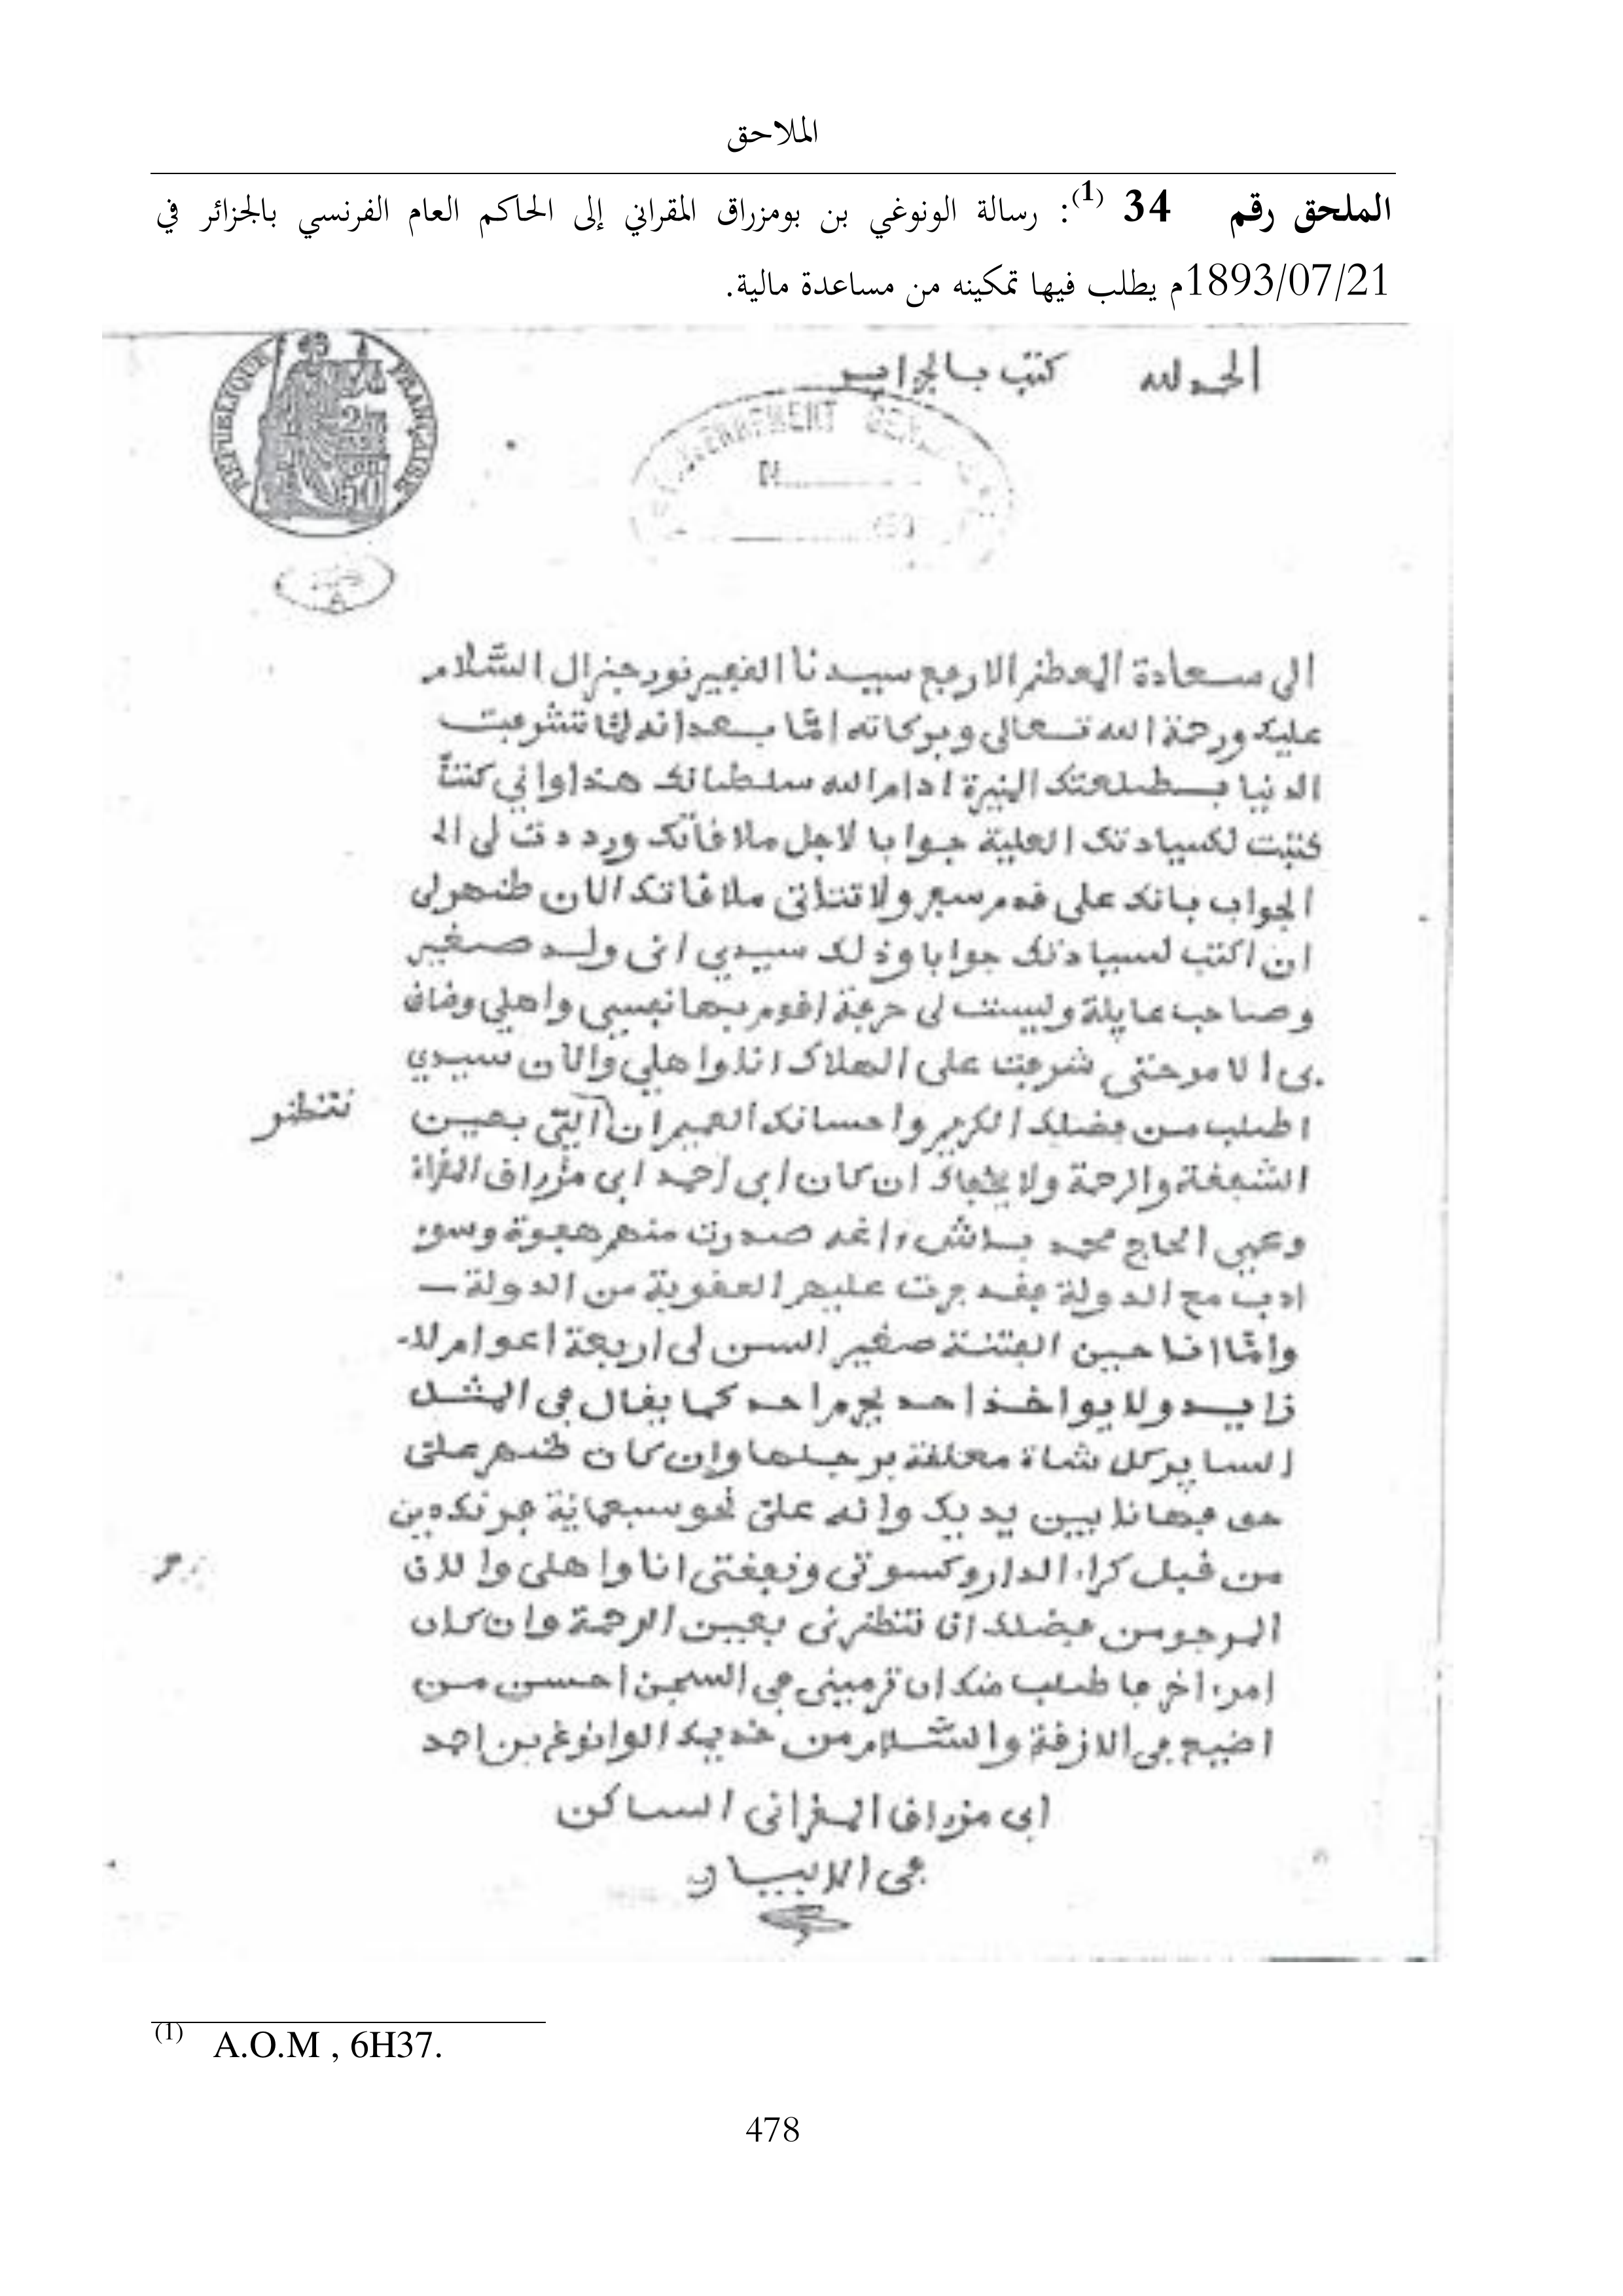 الملاحق
الملحق رقم 34 (1): رسالة الونوغي بن بومزراق المقراني إلى الحاكم العام الفرنسي بالجزائر في
1893/07/21م يطلب فيها تمكينه من مساعدة مالية.
الحمد لله كتب بالجزاير
REPUBLIQUE FRANÇAISE
GOUVERNEMENT
N
الى سعادة المعظم الارفع سيدنا القفيرنور جنرال السّلام
عليك ورحمة الله تعالى وبركاته امّا بعد انه لمّا تشرفت
الدنيا بطلعتك المنيرة ادام الله سلطانك هذا واني كنت
كتبت لسيادتك العلية جوابا لاجل ملاقاتك ورددت لى
الجواب بانك على قدم سفر ولا تتاتى ملاقاتك الان ظهرلى
ان اكتب لسيادتك جوابا وذلك سيدي انى ولد صغير
وصاحب عايلة وليست لى حرفة اقوم بها نفسي واهلي وضاق
بى الامر حتى شرفت على الهلاك انا واهلي والان سيدي
اطلب من فضلك الكريم واحسانك العميم ان الىّ بعين
تنظر
الشفقة والرحمة ولا يخفاك ان كان ابى احمد ابى مزراق المقرانى
وعمي الحاج محمد باش ءاغه صدرت منهم هفوة وسوء
ادب مع الدولة فقد جرت عليهم العقوبة من الدولة
وامّا انا حين الفتنة صغير السن لى اربعة اعوام لا
زايد ولا يواخذ احد بجرم احد كما يقال في المثل
الساير كل شاة معلقة برجلها وإن كان ظهر علىّ
حق فها انا بين يديك وانه علىّ نحو سبعماية فرنك دين
من قبل كراء الدار وكسوتى ونفقتى انا واهلى والان
المرجو من فضلك ان تنظرنى بعين الرحمة وان كان
امرءاخر فاطلب منك ان ترمينى في السجن احسن من
اضيع في الازقة والسّلام من خديمك الوانوغى بن احمد
ابى مزراق المقرانى الساكن
في الابيار
(1) A.O.M , 6H37.
478